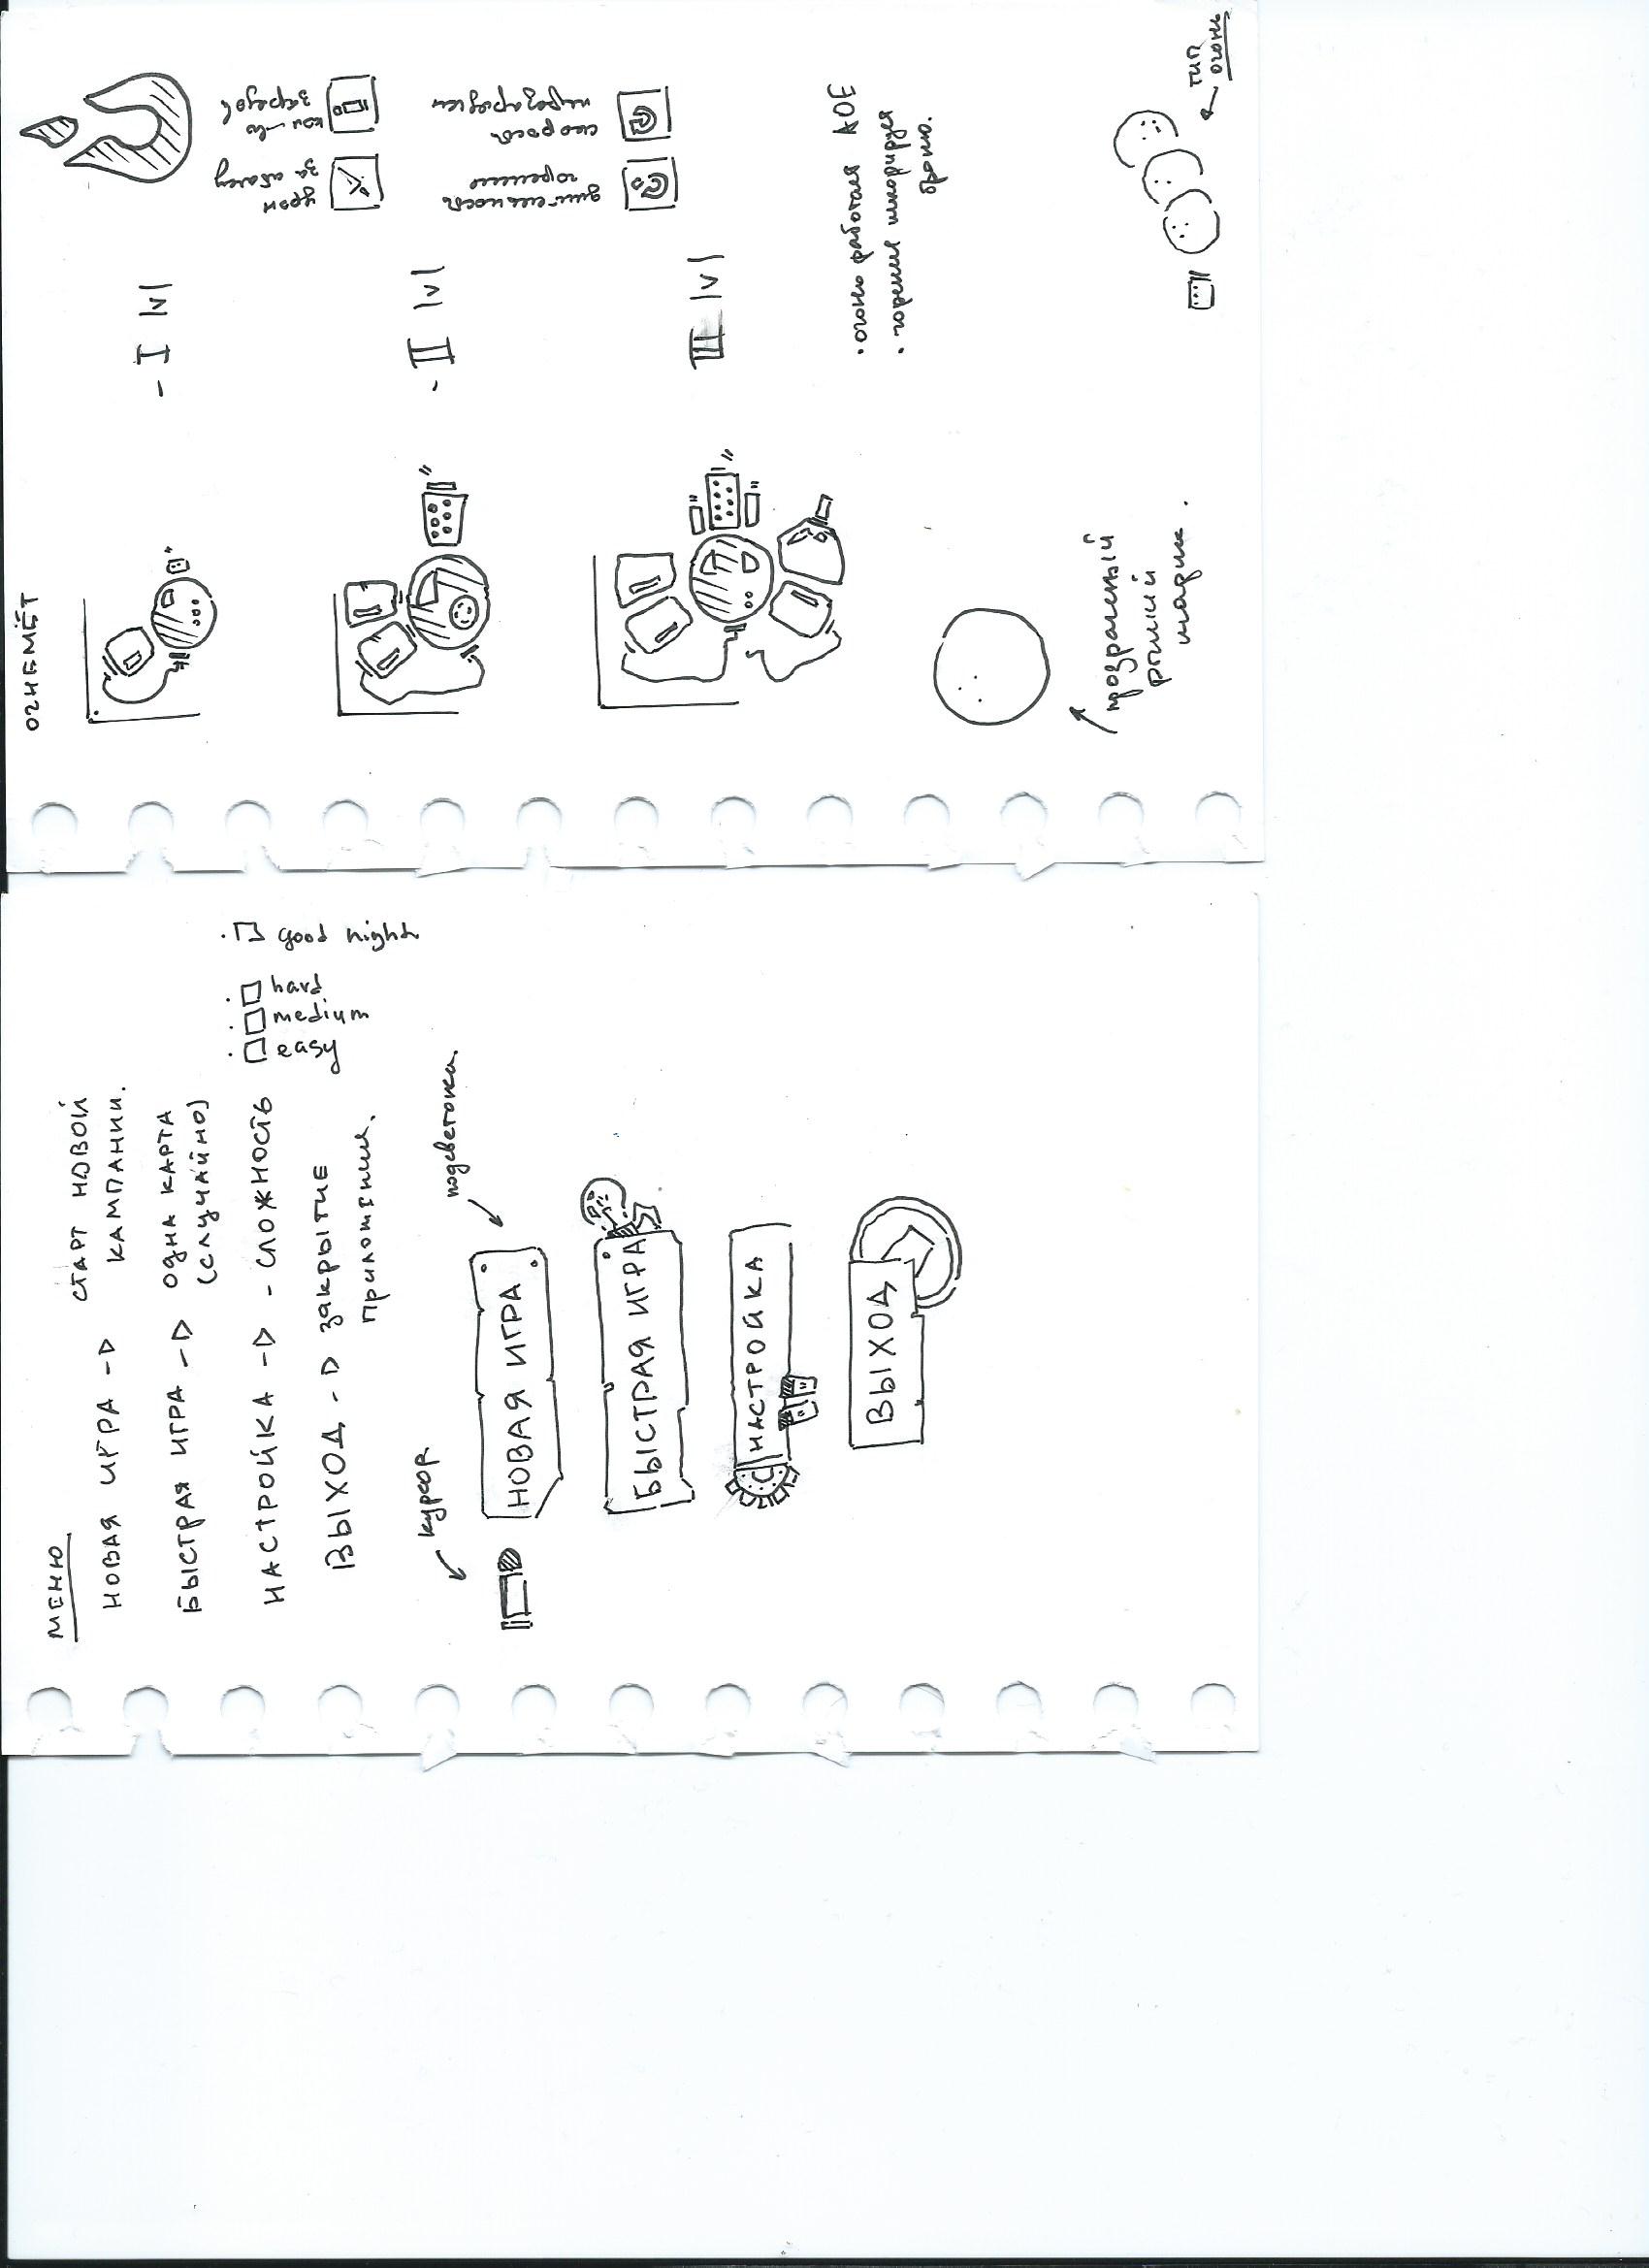 МЕНЮ
НОВАЯ ИГРА → СТАРТ НОВОЙ
КАМПАНИИ.
БЫСТРАЯ ИГРА → ОДНА КАРТА
(СЛУЧАЙНО)
НАСТРОЙКА → - СЛОЖНОСТЬ
easy
medium
hard
good night
ВЫХОД → закрытие
приложения.
курсор
подсветочка.
НОВАЯ ИГРА
БЫСТРАЯ ИГРА
НАСТРОЙКА
ВЫХОД
ОГНЕМЁТ
- I lvl
- II lvl
III lvl
урон
за атаку
кол-во
зарядов
длительность
горения
скорость
перезарядки
• огонь работает AOE
• горение игнорирует
броню.
прозрачный
рыжий
шарик.
тип
огонь